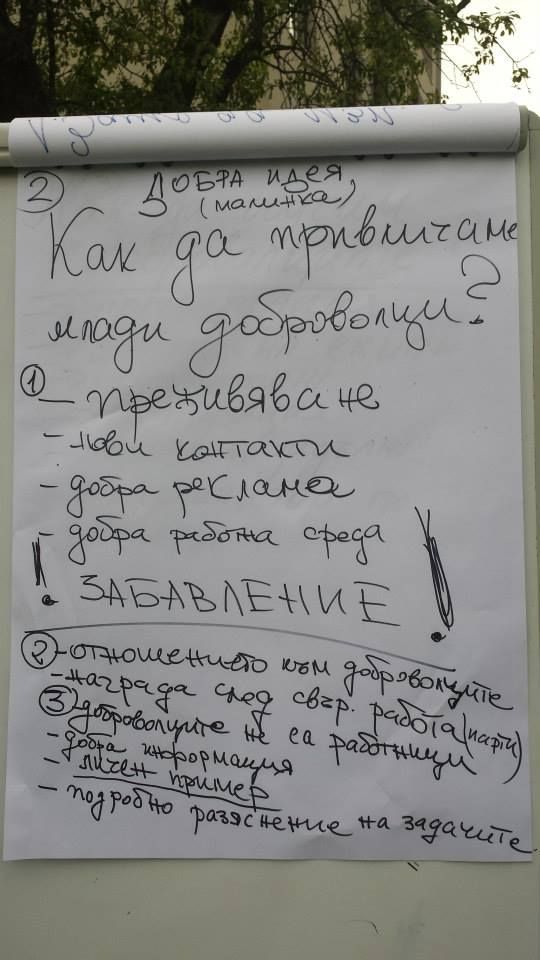 ② ДОБРА ИДЕЯ,
(малинка)
Как да привличаме
млади доброволци?
① - преживяване
- нови контакти
- добра реклама
- добра работна среда
! ЗАБАВЛЕНИЕ !
② - отношението към доброволците
- награда след свър. работа (парти)
③ - доброволците не са работници
- добра информация
- личен пример
- подробно разяснение на задачите